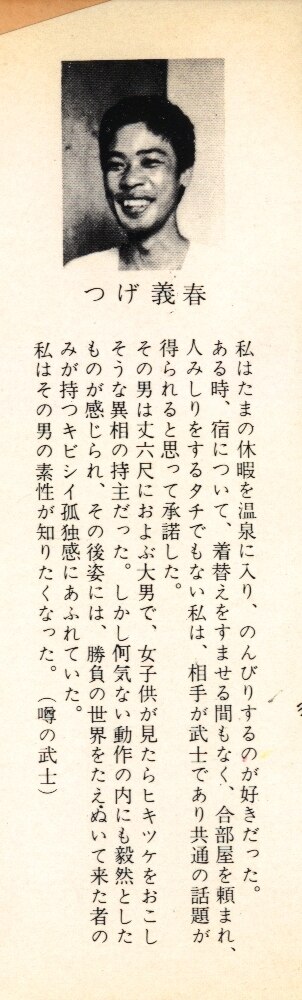 つげ義春
私はたまの休暇を温泉に入り、のんびりするのが好きだった。
ある時、宿について、着替えをすませる間もなく、合部屋を頼まれ、
人みしりをするタチでもない私は、相手が武士であり共通の話題が
得られると思って承諾した。
その男は丈六尺におよぶ大男で、女子供が見たらヒキツケをおこし
そうな異相の持主だった。しかし何気ない動作の内にも毅然とした
ものが感じられ、その後姿には、勝負の世界をたえぬいて来た者の
みが持つキビシイ孤独感にあふれていた。
私はその男の素性が知りたくなった。（噂の武士）